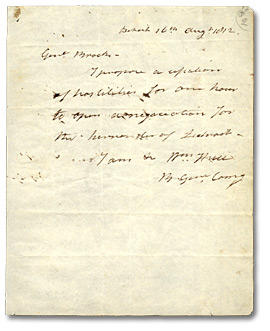 Detroit 16th Augt 1812
Genl Brock -
I propose a cessation
of hostilities for one hour
to open a negociation for
the surrender of Detroit -
I am &c Wm Hull
B. Genl Comg